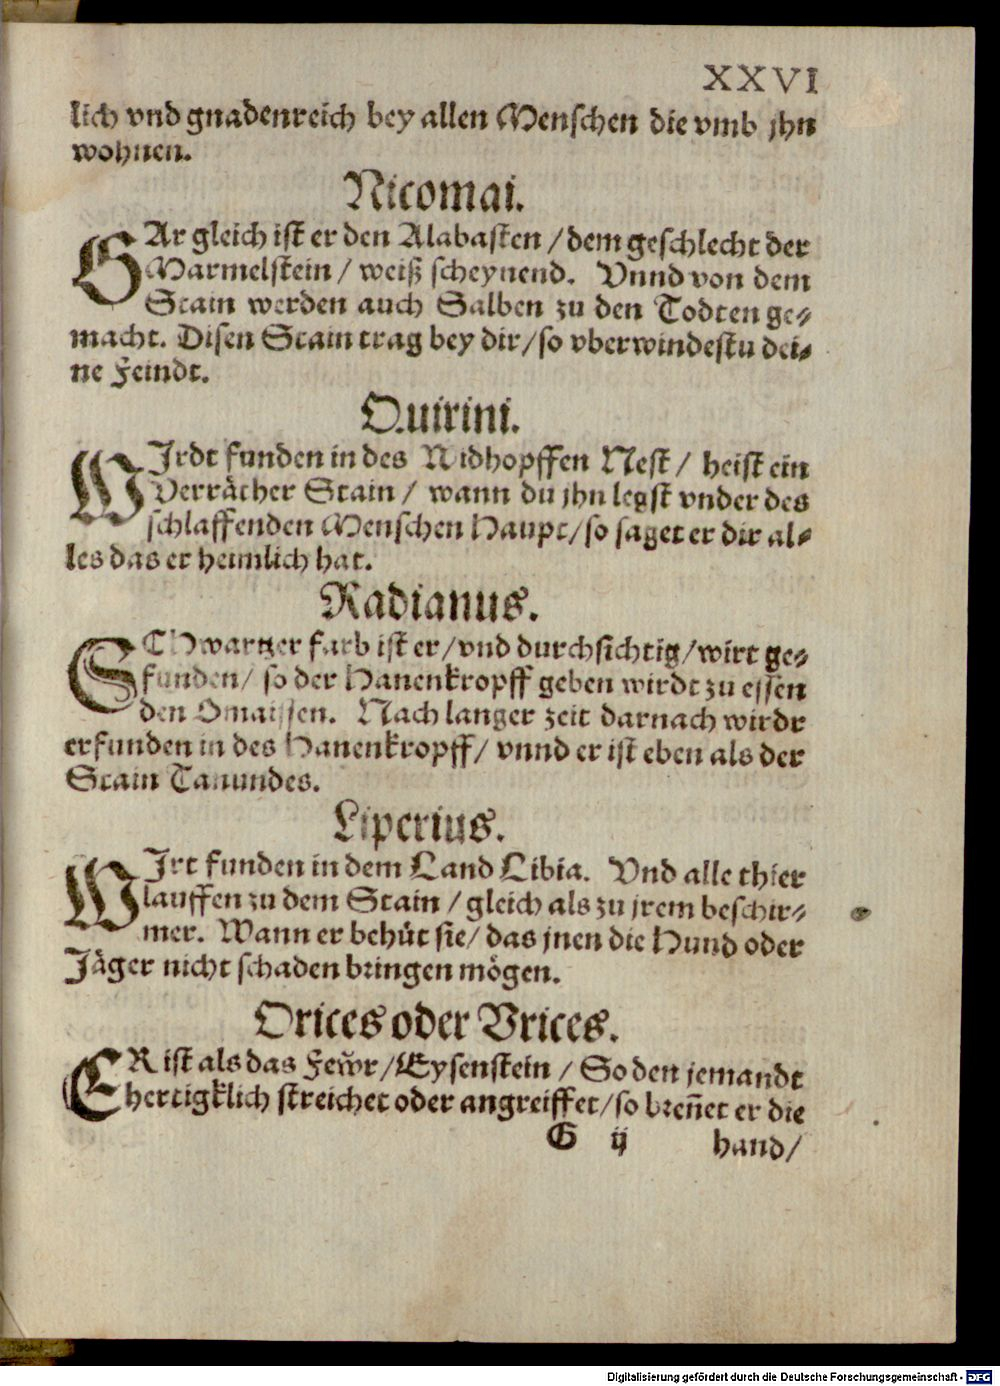 XXVI
lich vnd gnadenreich bey allen Menschen die vmb jhn
wohnen.
Nicomai.
GAr gleich ist er den Alabasten / dem geschlecht der
Marmelstein / weiß scheynend. Vnnd von dem
Stain werden auch Salben zu den Todten ge⸗
macht. Disen Stain trag bey dir / so vberwindestu dei⸗
ne Feindt.
Quirini.
WIrdt funden in des Nidhopffen Nest / heist ein
Verräther Stain / wann du jhn legst vnder des
schlaffenden Menschen Haupt / so saget er dir al⸗
les das er heimlich hat.
Radianus.
SChwartzer farb ist er / vnd durchsichtig / wirt ge⸗
funden / so der Hanenkropff geben wirdt zu essen
den Omaissen. Nach langer zeit darnach wirdt
er funden in des Hanenkropff / vnnd er ist eben als der
Stain Tanundes.
Liperius.
WIrt funden in dem Land Libia. Vnd alle thier
lauffen zu dem Stain / gleich als zu jrem beschir⸗
mer. Wann er behüt sie / das jnen die Hund oder
Jäger nicht schaden bringen mögen.
Orices oder Vrices.
ER ist als das Fewr / Eysenstein / So den jemandt
hertigklich streichet oder angreiffet / so breñet er die
G ij hand /
Digitalisierung gefördert durch die Deutsche Forschungsgemeinschaft - DFG